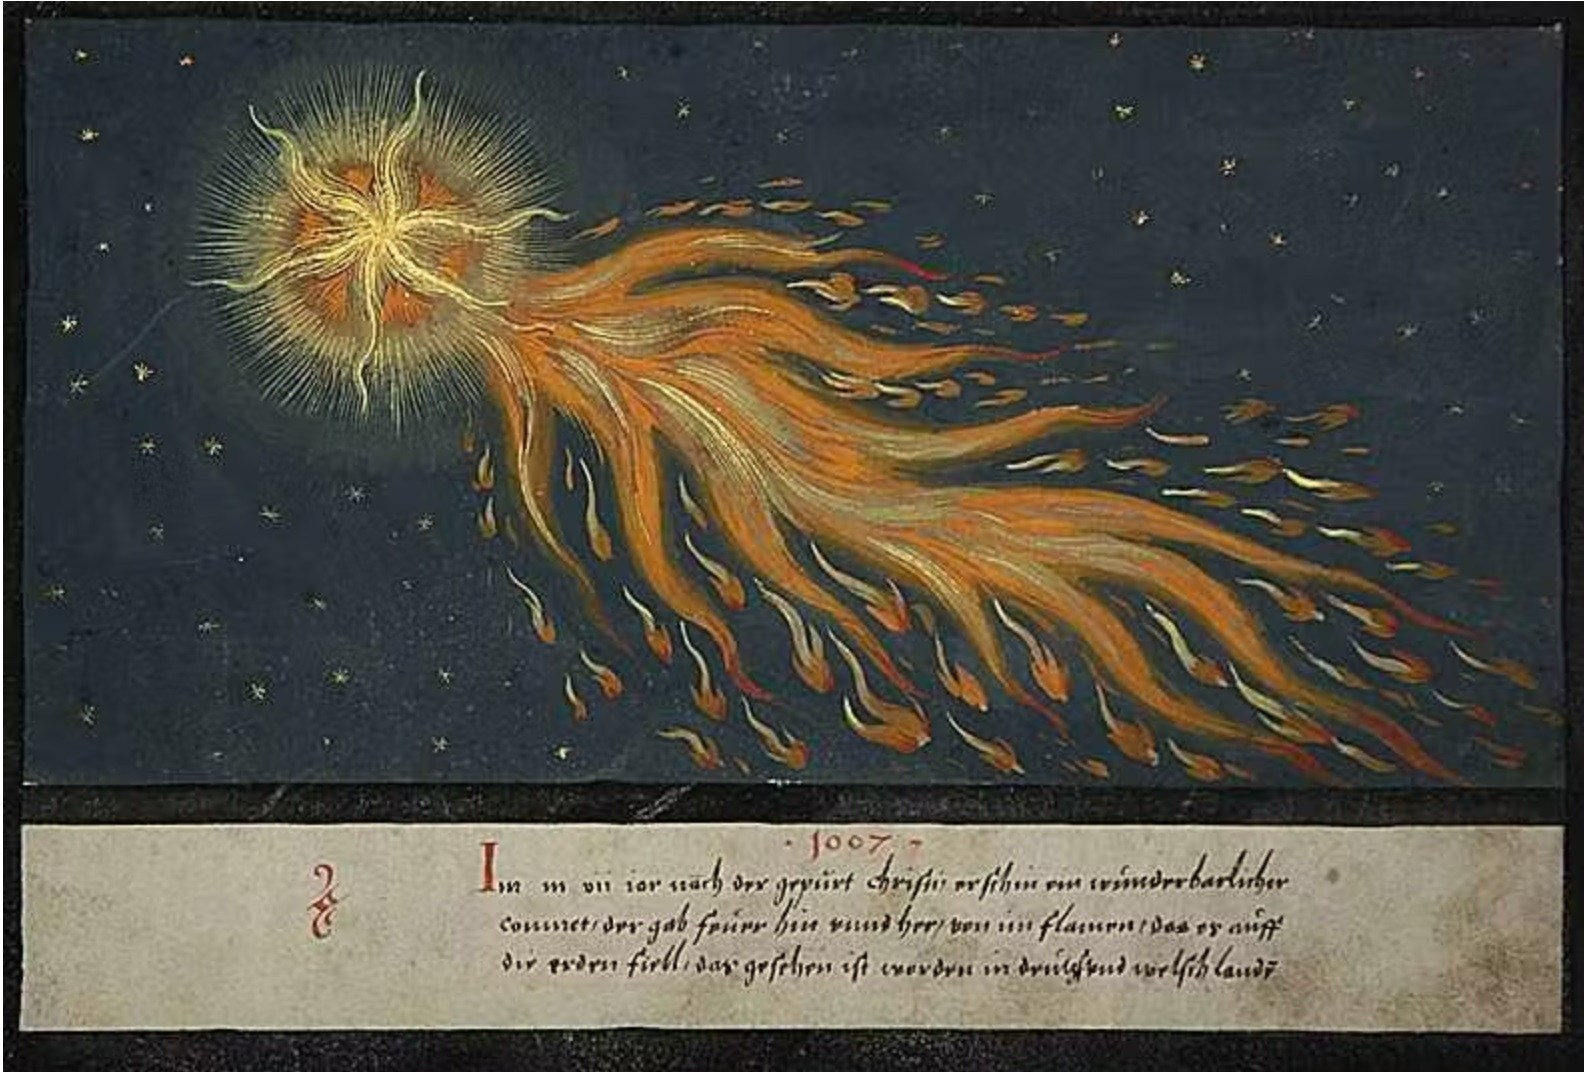 · 1007 ·
Im m vii iar nach der gepurt christi erschin ein wunderbarlicher
commet/ der gab feuer hin unnd her/ von im flamen/ das er auff
die erden fiell/ das gesehen ist worden in deutsch und welsch landn